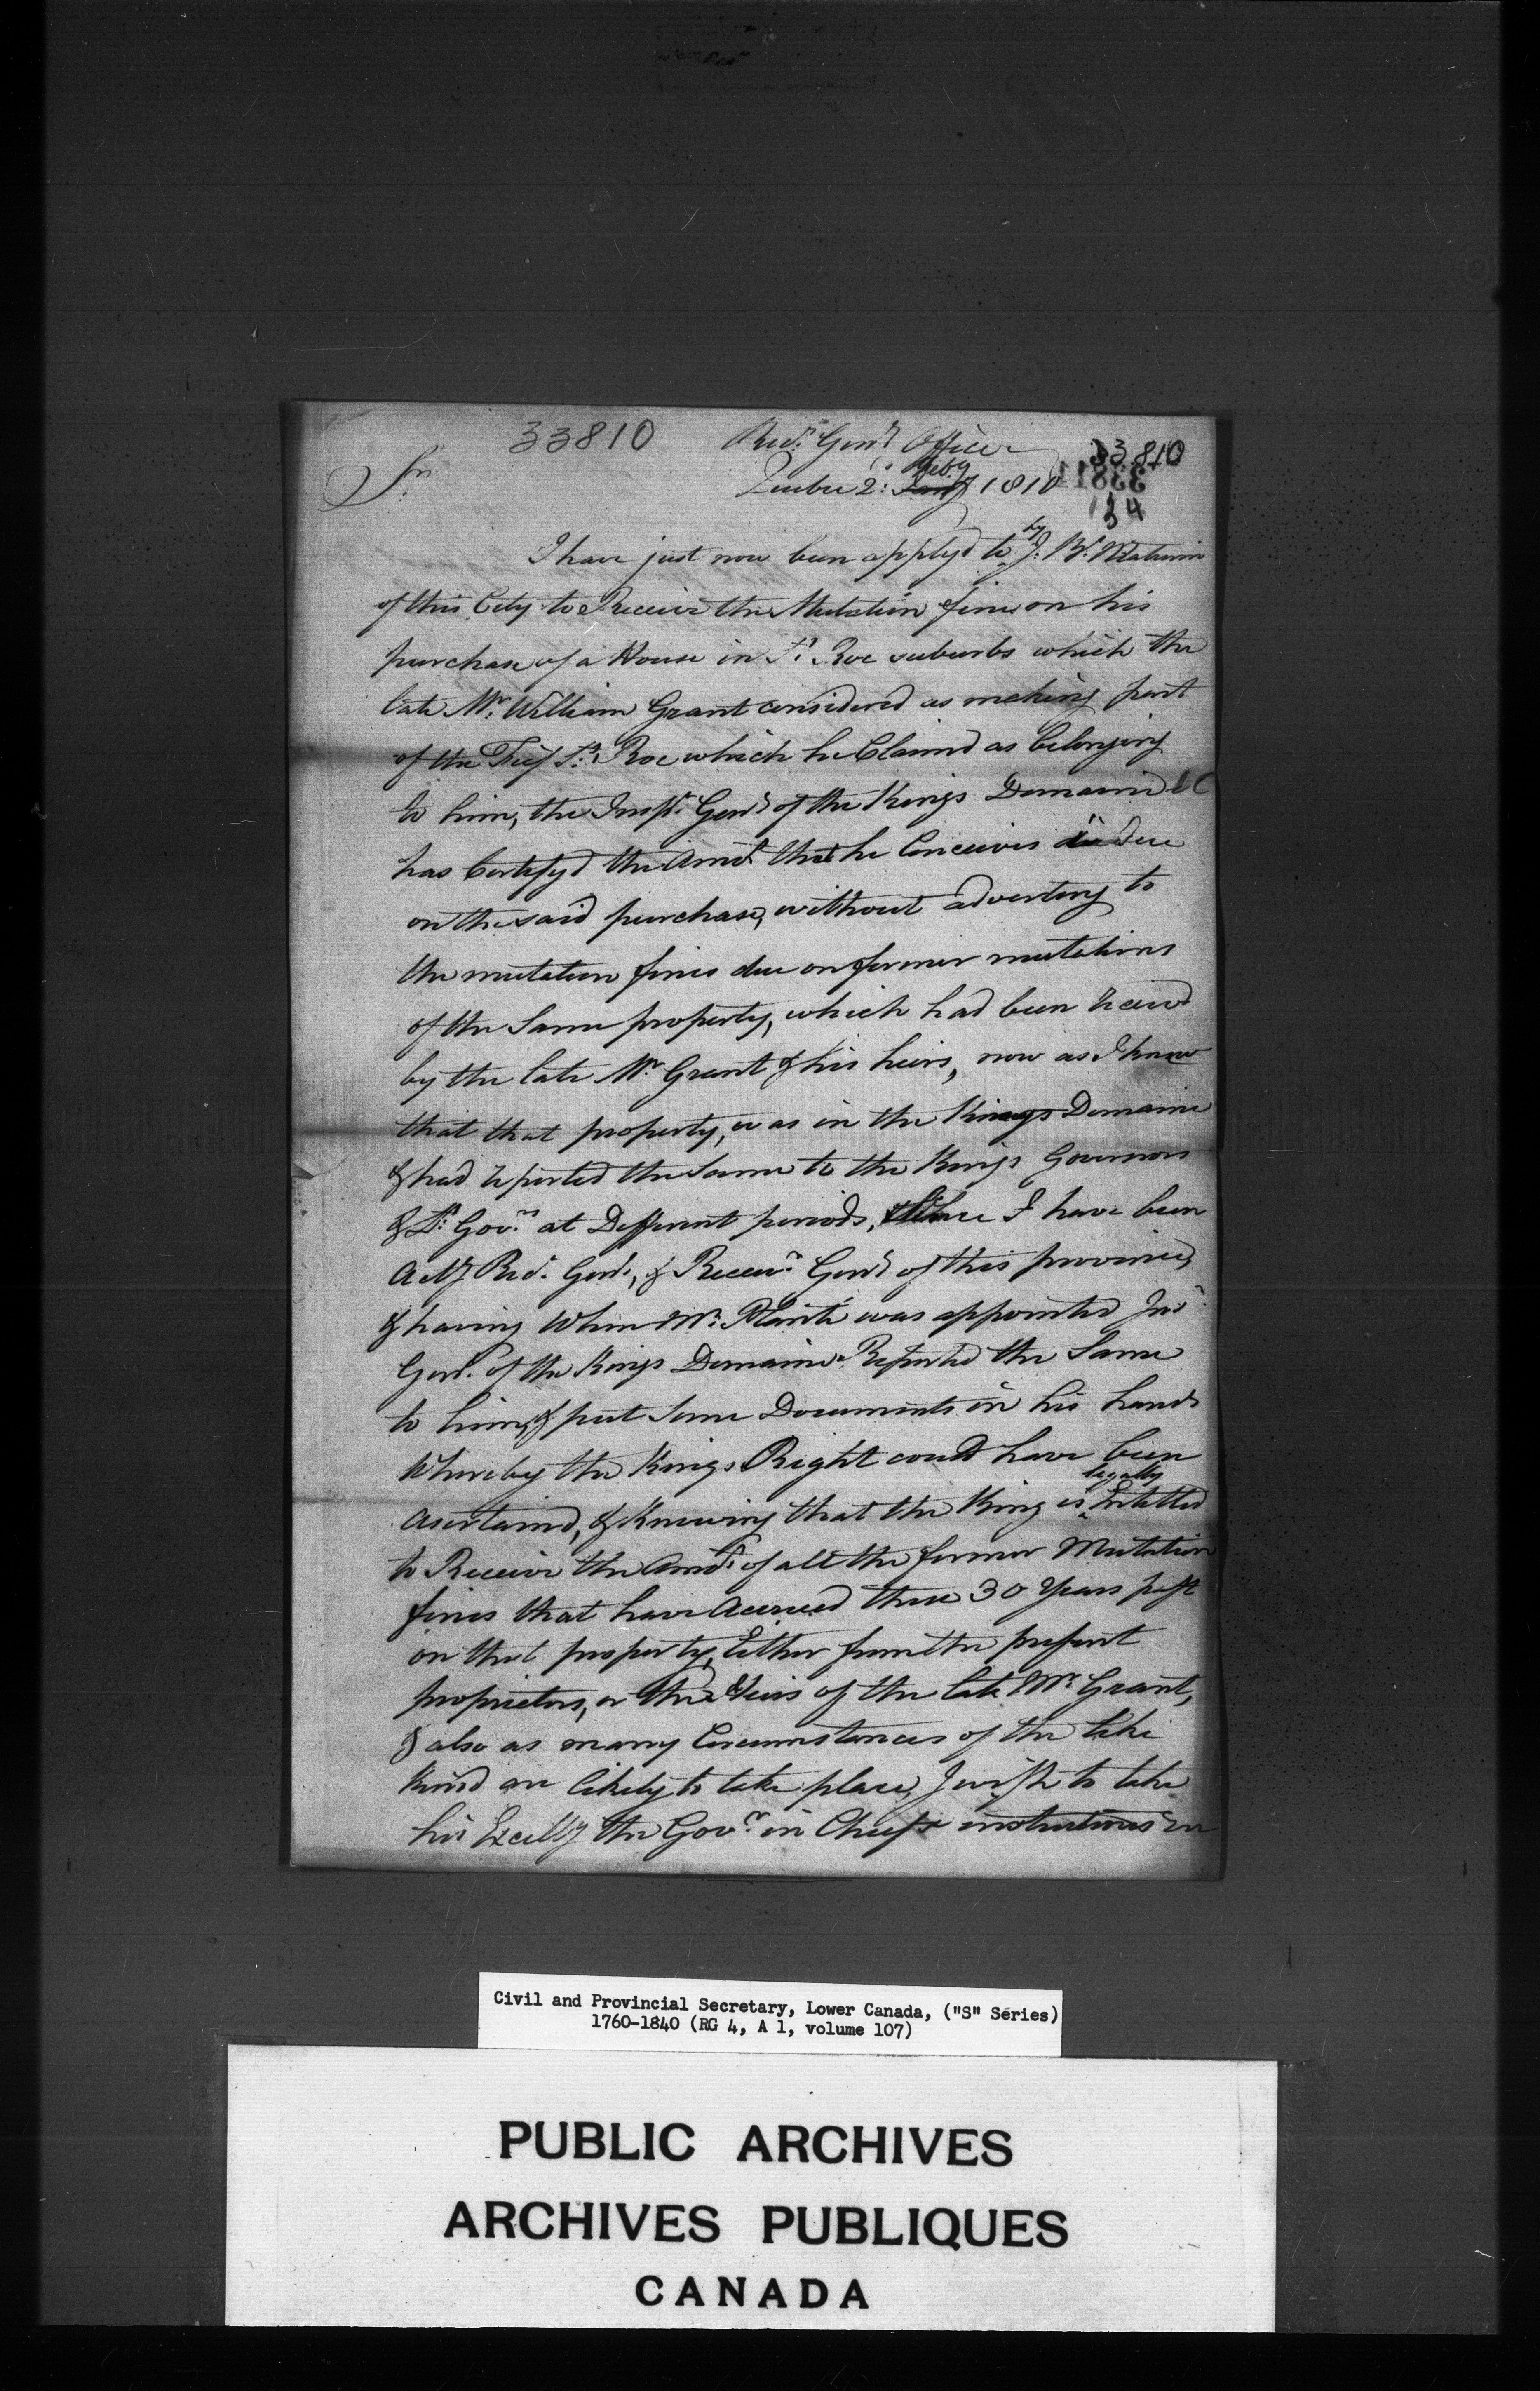 33810 Recr. Genl. Office
33810
Sir Quebec 2: Feby Jany 1810
134
I have just now been applyd to by J. Bt. Mathurin
of this City to Receive the Mutation fine on his
purchase of a House in St. Roc suburbs which the
late Mr. William Grant considered as making part
of the Fief St. Roc which he Claimd as belonging
to him, the Inspr. Genl of the Kings Domaine &C
has Certifyd the Amot that he Conceives is due
on the said purchase, without adverting to
the mutation fines due on former mutations
of the Same property, which had been receivd
by the late Mr. Grant & his heirs, now as I know
that that property, was in the Kings Domaine
& had reported the Same to the Kings Governors
& Lt. Govrs. at Different periods, Since I have been
Actg Recr. Genl., & Receivr. Genl of this province,
& having When Mr. Planté was appointed Insr.
Genl. of the Kings Domaine Reported the Same
to him, & put Some Documents in his hands
Whereby the Kings Right could have been
Asertaind, & Knowing that the King is legally Entitled
to Receive the Amots. of all the former Mutation
fines that have Accrued these 30 Years past
on that property, Either from the present
proprietors, or the Heirs of the late Mr. Grant,
& also as many Circumstances of the like
Kind are likely to take place, I wish to take
his Excelly the Govr. in Chiefs instructions on
Civil and Provincial Secretary, Lower Canada, ("S" Series)
1760-1840 (RG 4, A 1, volume 107)
PUBLIC ARCHIVES
ARCHIVES PUBLIQUES
CANADA